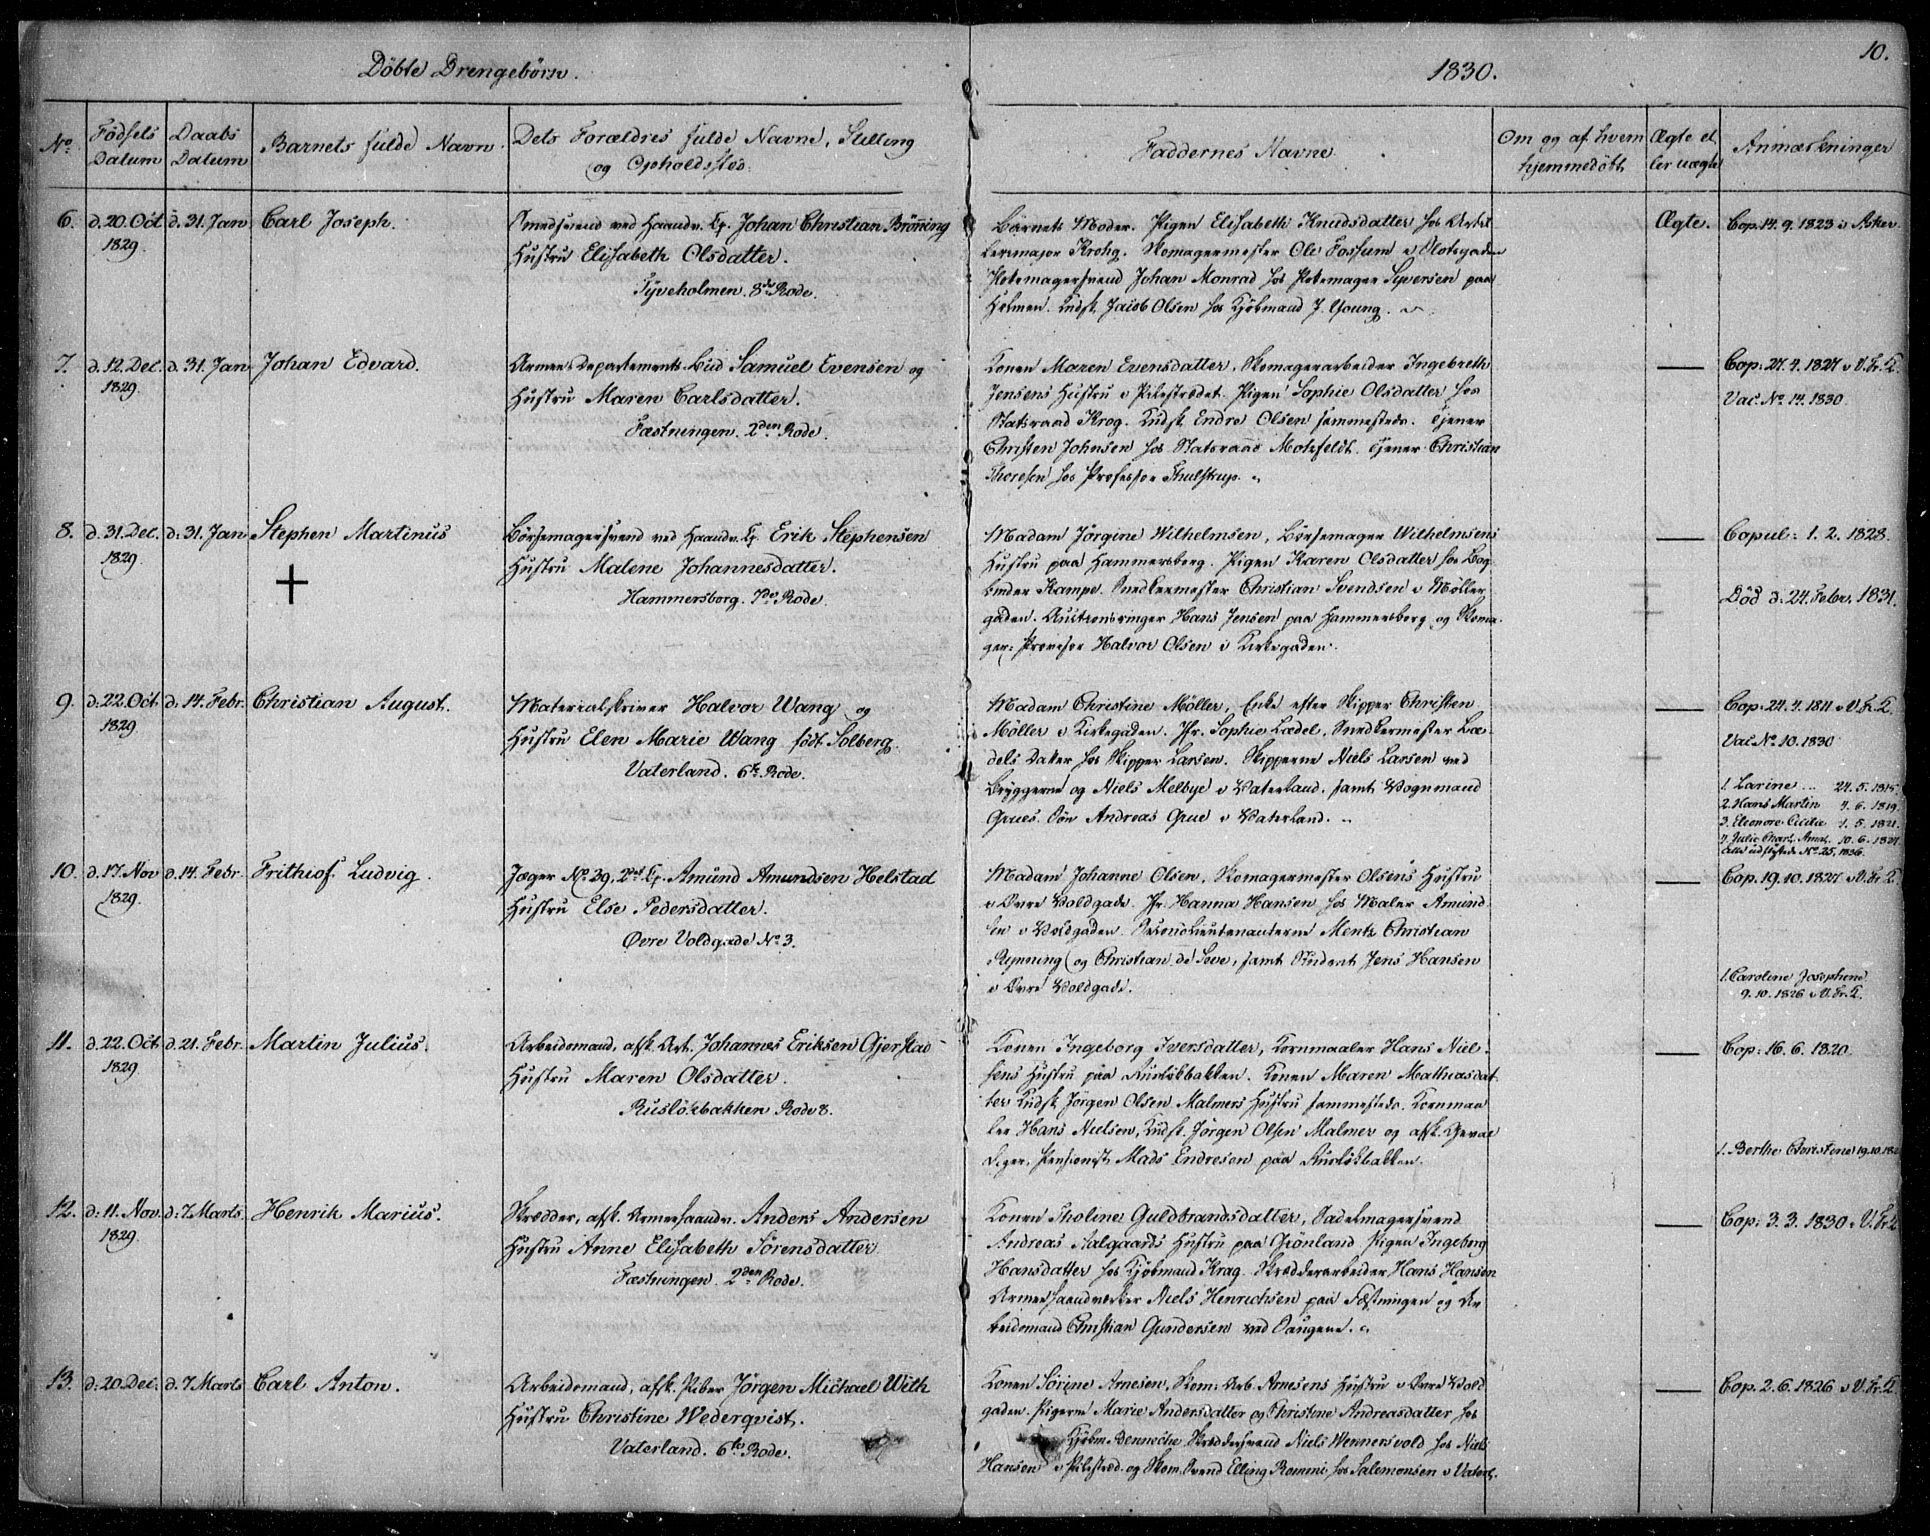 10.
Döbte Drengebörn.
1830.
No.
Fødsels Datum
Daabs Datum
Barnets fulde Navn.
Dets Forældres fulde Navne, Stilling
og Opholdssted.
Faddernes Navne
Om og af hvem hjemmedöbt
Ægte el ler uægte
Anmærkninger
6. d. 20. Oct 1829. d. 31. Jan Carl Joseph.
Smedsvend ved Haandv. Cp. Johan Christian Brönning
Hustru Elisabeth Olsdatter.
Tyveholmen. 8de Rode.
Barnets Moder. Pigen Elisabeth Knudsdatter hos Artil
lerimajor Krohg. Skomagermester Ole Fossum i Slotsgaden
Potemagersvend Johan Monrad hos Potemager Syversen paa
Holmen. Kudsk Jacob Olsen hos Kjöbmand J. Young.
Ægte.
Cop. 14. 9. 1823 i Asker
7. d. 12. Dec. 1829. d. 31. Jan Johan Edvard.
Armee Departements Bud Samuel Evensen og
Hustru Maren Carlsdatter.
Fæstningen. 2den Rode.
Konen Maren Evensdatter, Skomagerarbeider Ingebreth
Jensens Hustru i Pilestrædet. Pigen Sophie Olsdatter hos
Statsraad Krog. Kudsk Endre Olsen sammesteds. Tjener
Christen Johnsen hos Statsraad Motzfeldt. Tjener Christian
Thoresen hos Professor Thulstrup.
Cop: 27. 4. 1827 i V. Fr. K
Vac. No. 14. 1830.
8. d. 31. Dec. 1829. d. 31. Jan Stephen Martinus
Börsemagersvend ved Haandv. Cp. Erik Stephensen
Hustru Malene Johannesdatter.
Hammersborg. 7de Rode.
Madam Jörgine Wilhelmsen, Börsemager Wilhelmsens
Hustru paa Hammersborg. Pigen Karen Olsdatter hos Bog
binder Kampe. Snedkermester Christian Svendsen i Möller
gaden. Auctionsringer Hans Jensen paa Hammersborg og Skoma
ger-Provisor Halvor Olsen i Kirkegaden.
Copul: 1. 2. 1828.
Död d. 24. Febr. 1831.
9. d. 22. Oct 1829 d. 14. Febr. Christian August.
Materialskriver Halvor Wang og
Hustru Elen Marie Wang född Solberg.
Vaterland. 6te Rode.
Madam Christine Möller, Enke efter Skipper Christen
Möller i Kirkegaden. Jfr. Sophie Lædel, Snedkermester Læ-
dels Datter hos Skipper Larsen. Skipperne Niels Larsen ved
Bryggerne og Niels Melbye i Vaterland. samt Vognmand
Grues Sön Andreas Grue i Vaterland.
Cop: 24. 4. 1811 i V. Fr. K.
Vac. No. 10. 1830
1. Larine ... 24. 5. 1815.
2. Hans Martin 4. 6. 1819.
3. Eleonore Cicilie 1. 5. 1821.
4. Julie Charl. Amal. 10. 6. 1827
alle udflyttede No. 25, 1836.
10. d. 17. Nov 1829. d. 14. Febr. Frithiof Ludvig.
Jæger No. 39, 2det Cp. Amund Amundsen Helstad
Hustru Else Pedersdatter.
Øvre Voldgade No. 3.
Madam Johanne Olsen, Skomagermester Olsens Hustru
i Övre Voldgade. Jfr. Hanna Hansen hos Maler Amund
sen i Voldgaden. Secondlieutenanterne Mentz Christian
Rynning og Christian de Seve, samt Student Jens Hansen
i Övre Voldgade.
Cop. 19. 10. 1827 i V. Fr. K
1. Caroline Josephine
9. 10. 1826 i V. Fr. K.
11. d. 22. Oct 1829 d. 21. Febr. Martin Julius.
Arbeidsmand, afsk. Art. Johannes Eriksen Gjerstad
Hustru Maren Olsdatter.
Ruslökbakken Rode 8.
Konen Ingeborg Iversdatter, Kornmaaler Hans Niel-
sens Hustru paa Ruslökbakken. Konen Maren Mathiasdat
ter Kudsk Jörgen Olsen Malmers Hustru sammesteds. Kornmaa
ler Hans Nielsen, Kudsk Jörgen Olsen Malmer og afsk. Geval
diger, Pensionist Mads Endresen paa Ruslökbakken.
Cop: 16. 6. 1820.
1. Berthe Christine 19. 10. 182
12. d. 11. Nov. 1829. d. 7. Marts. Henrik Marius.
Skrædder, afsk. Armeehaandv. Anders Andersen
Hustru Anne Elisabeth Sörensdatter
Fæstningen. 2den Rode.
Konen Tholine Guldbrandsdatter, Sadelmagersvend
Andreas Aalgaards Hustru paa Grönland Pigen Ingeborg
Hansdatter hos Kjöbmand Krag. Skrædderarbeider Hans Hansen
Armeehaandverker Niels Henrichsen paa Fæstningen og Ar
beidsmand Christian Gundersen ved Saugene.
Cop: 3. 3. 1830 i V. Fr K
13. d. 20. Dec. d. 7. Marts Carl Anton.
Arbeidsmand, afsk. Piber Jörgen Michael Wilh
Hustru Christine Wederqvist.
Vaterland. 6te Rode.
Konen Sörine Arnesen, Skom. Arb. Arnesens Hustru i Övre Vold
gaden. Pigerne Marie Andersdatter og Christine Andreasdatter hos
Kjöbm. Benneche Skreddersvend Niels Wennersvold hos Niels
Hansen i Pilestræd. og Skom. Svend Elling Rommi hos Salomonsen i Vaterl.
Cop. 2. 6. 1826 i V. Fr. K.